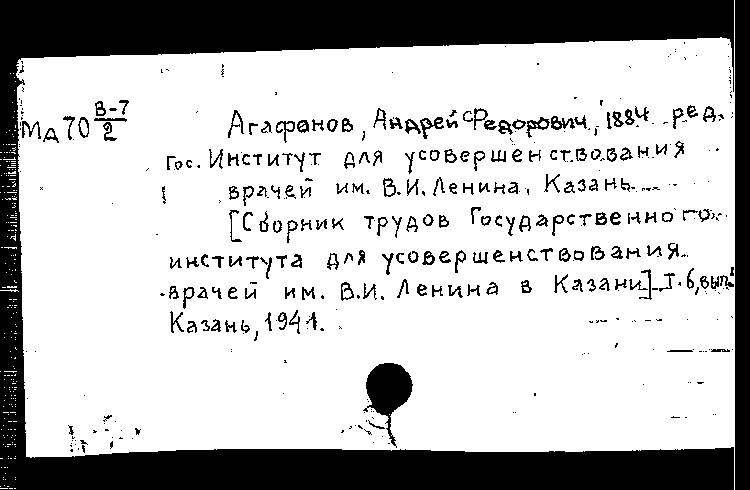 Мд 70 В-7/2
Агафонов, Андрей Федорович, 1884 ред.
Гос. Институт для усовершенствования
врачей им. В.И. Ленина, Казань
[Сборник трудов Государственного
института для усовершенствования
врачей им. В.И. Ленина в Казани] Т. 6, вып.
Казань, 1941.